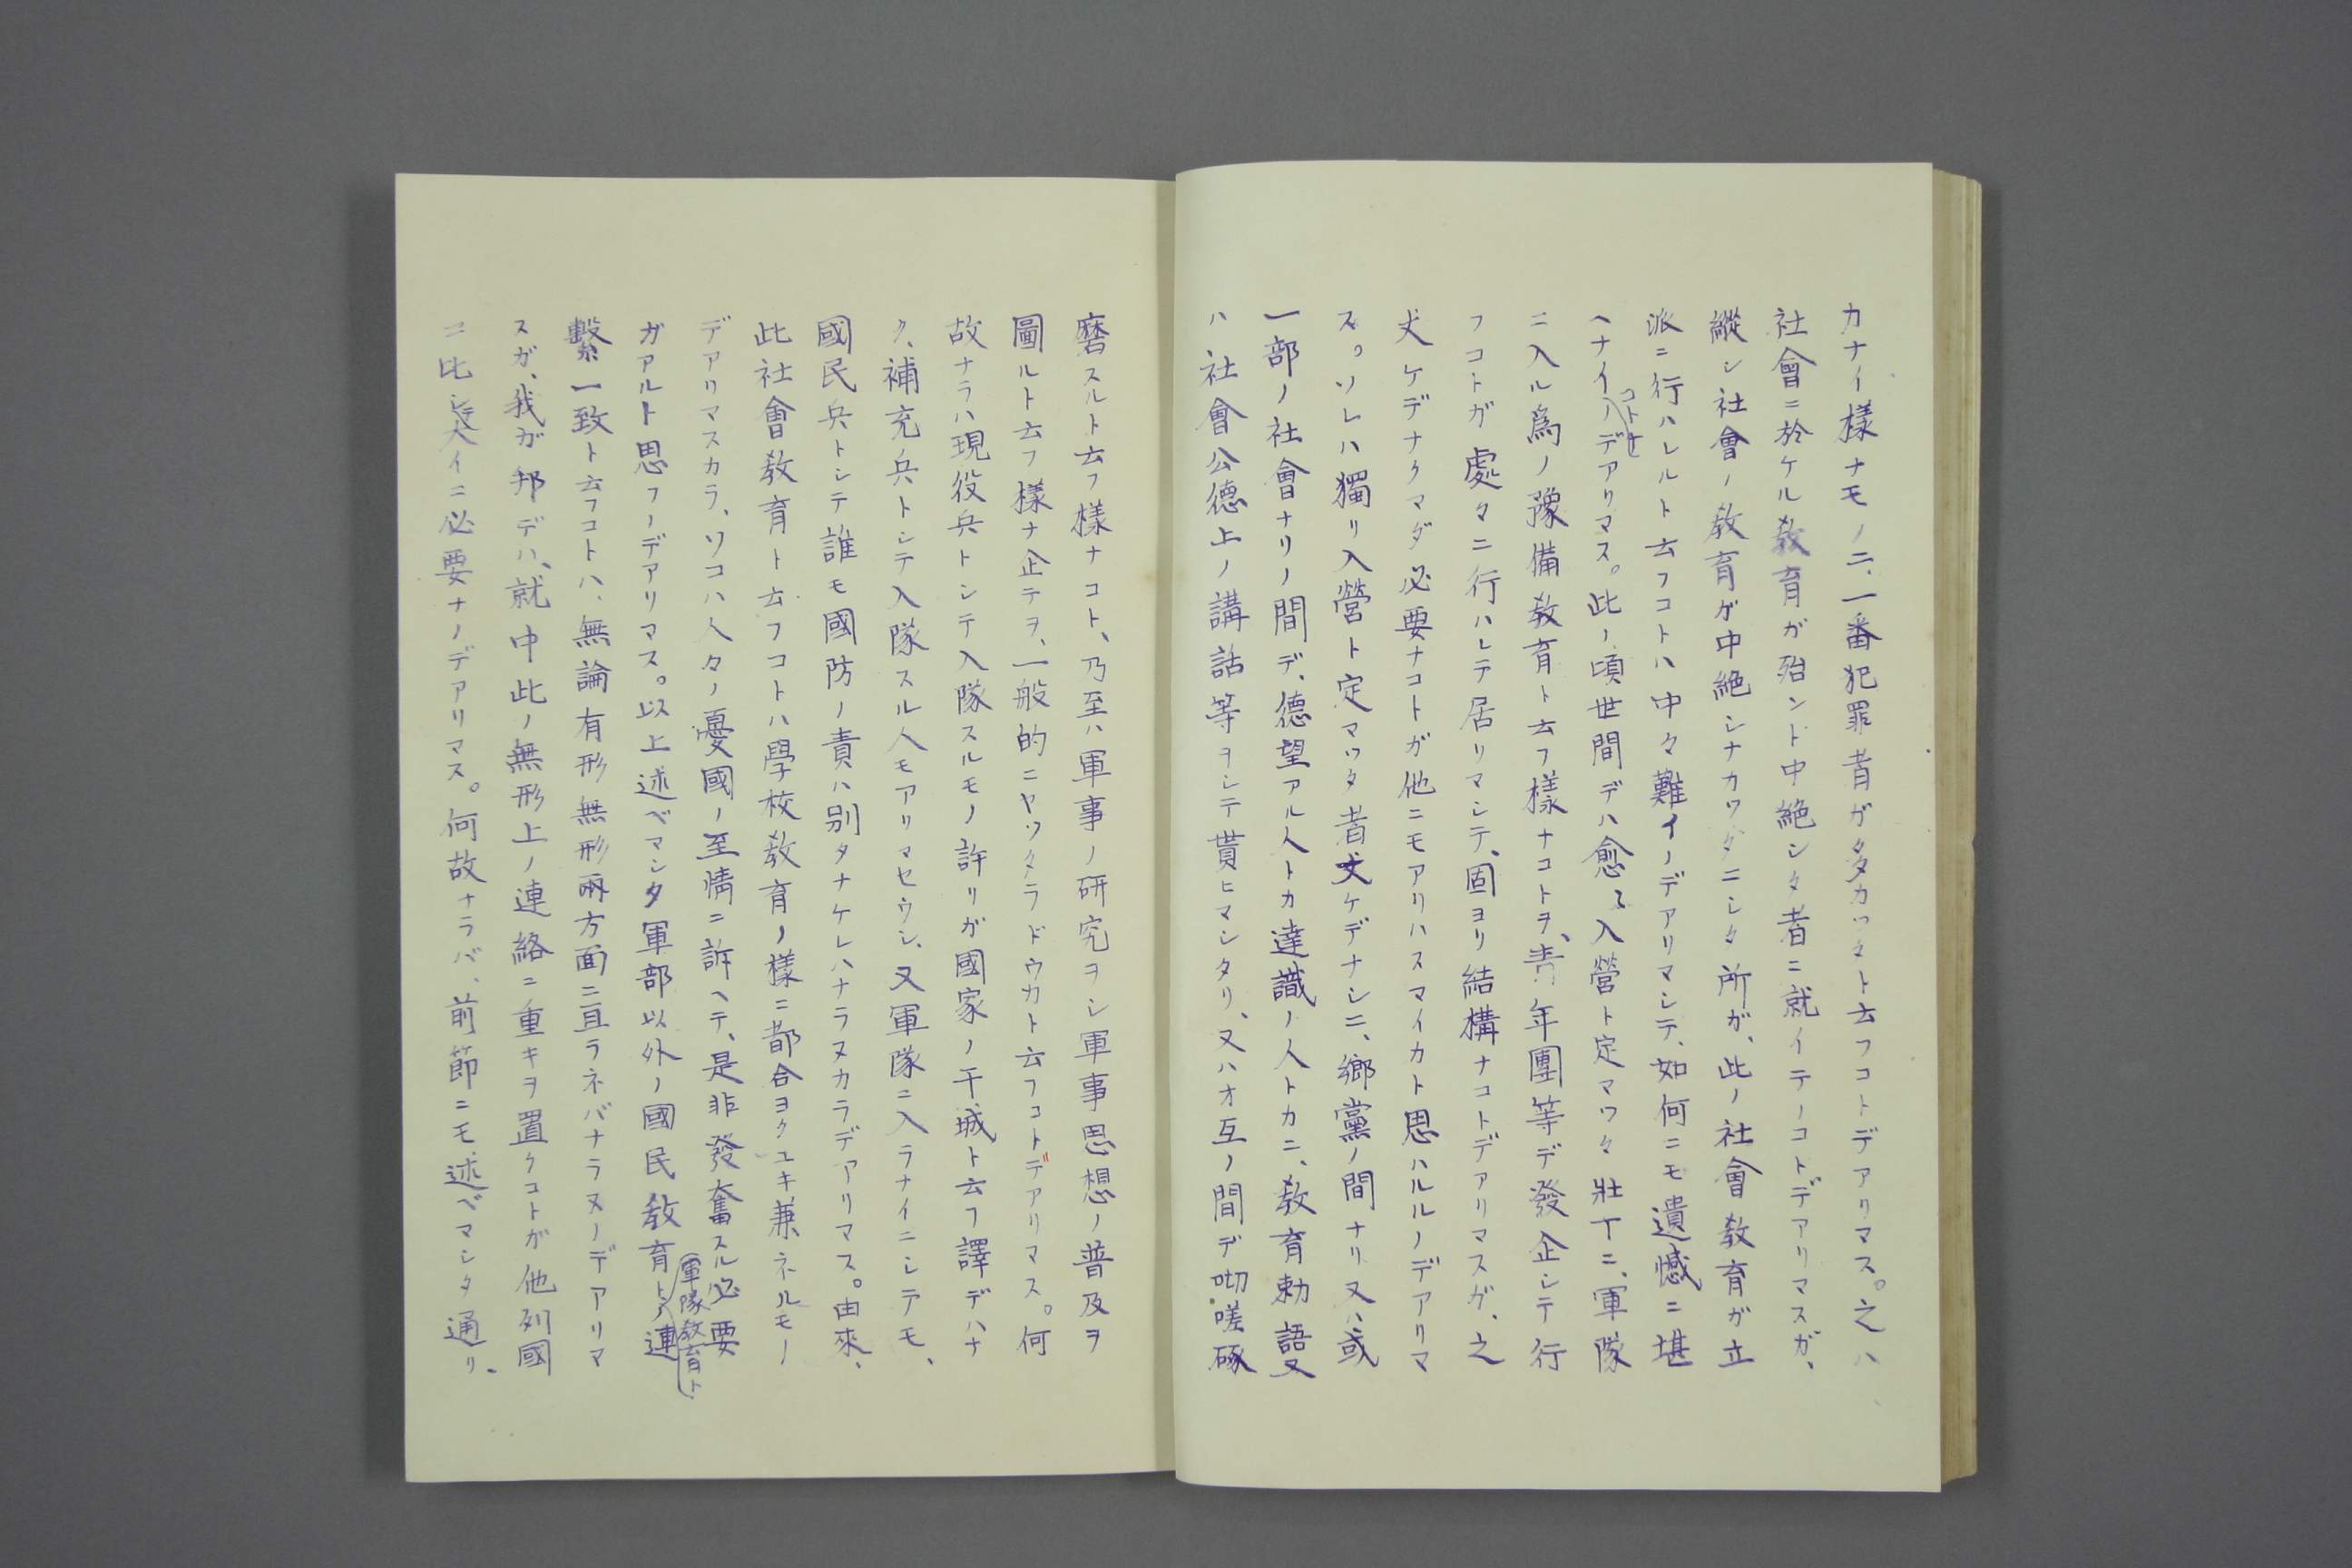 カナイ樣ナモノニ、一番犯罪者ガ多カッタト云フコトデアリマス。之ハ
社會ニ於ケル敎育ガ殆ント中絶シタ者ニ就イテノコトデアリマスガ、
縱シ社會ノ敎育ガ中絶シナカッタニシタ所ガ、此ノ社會敎育ガ立
派ニ行ハレルト云フコトハ中々難イノデアリマシテ、如何ニモ遺憾ニ堪
ヘナイコトデアリマス。此ノ頃世間デハ愈〻入營ト定マッタ壯丁ニ、軍隊
ニ入ル爲ノ豫備敎育ト云フ樣ナコトヲ、靑年團等デ發企シテ行
フコトガ處々ニ行ハレテ居リマシテ、固ヨリ結構ナコトデアリマスガ、之
丈ケデナクマダ必要ナコトガ他ニモアリハスマイカト思ハルルノデアリマ
ス。ソレハ獨リ入營ト定マッタ者丈ケデナシニ、鄕黨ノ間ナリ又ハ或
一部ノ社會ナリノ間デ、德望アル人トカ達識ノ人トカニ、敎育勅語又
ハ社會公德上ノ講話等ヲシテ貰ヒマシタリ、又ハオ互ノ間デ切嗟琢
磨スルト云フ樣ナコト、乃至ハ軍事ノ硏究ヲシ軍事思想ノ普及ヲ
圖ルト云フ樣ナ企テヲ、一般的ニヤッタラドウカト云フコトデアリマス。何
故ナラハ現役兵トシテ入隊スルモノ許リガ國家ノ干城ト云フ譯デハナ
ク、補充兵トシテ入隊スル人モアリマセウシ、又軍隊ニ入ラナイニシテモ、
國民兵トシテ誰モ國防ノ責ハ別タナケレハナラヌカラデアリマス。由來、
此社會敎育ト云フコトハ學校敎育ノ樣ニ都合ヨクユキ兼ネルモノ
デアリマスカラ、ソコハ人々ノ憂國ノ至情ニ訴ヘテ、是非發奮スル必要
ガアルト思フノデアリマス。以上述ベマシタ軍部以外ノ國民敎育ト(軍隊敎育ト)ノ連
繫一致ト云フコトハ、無論有形無形兩方面ニ亘ラネバナラヌノデアリマ
スガ、我ガ邦デハ、就中此ノ無形上ノ連絡ニ重キヲ置クコトガ他列國
ニ比シ大イニ必要ナノデアリマス。何故ナラバ、前節ニモ述ベマシタ通リ、